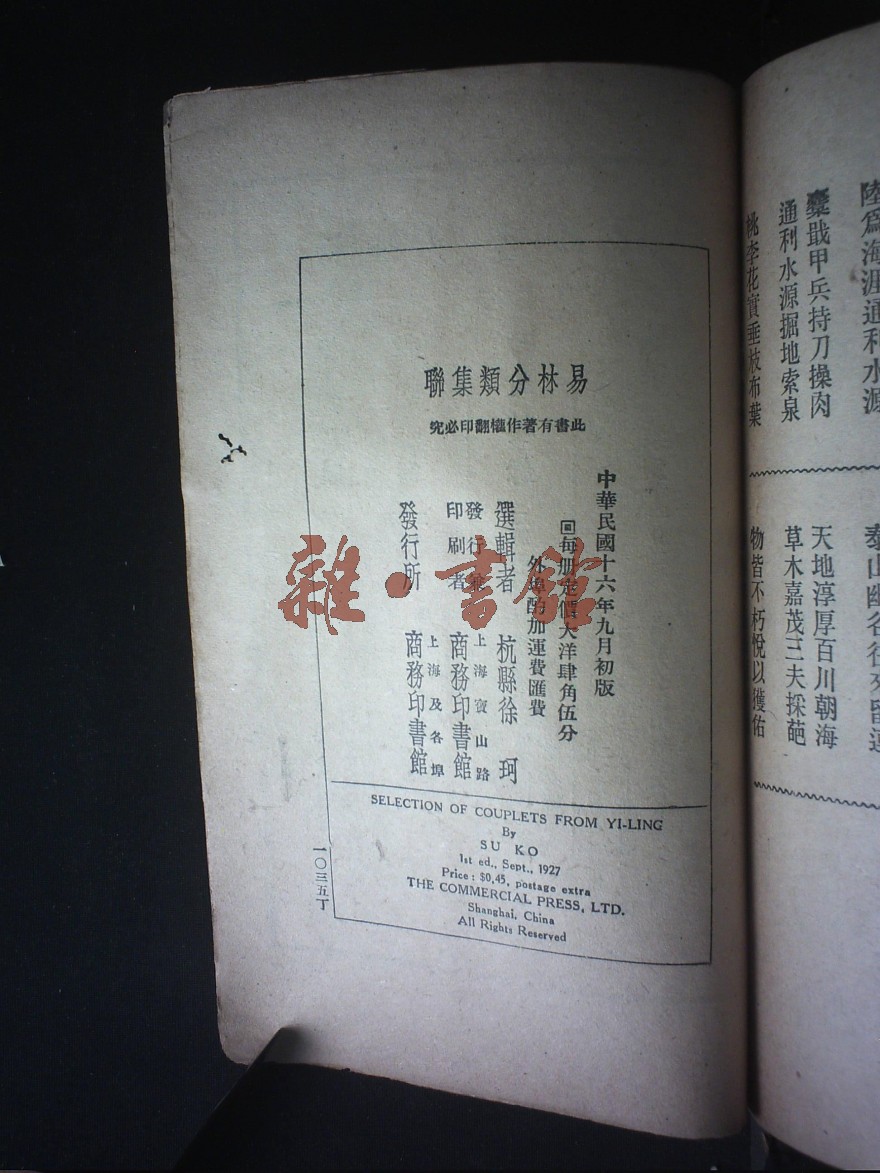 易林分類集聯
此書有著作權翻印必究
中華民國十六年九月初版
回每册定價大洋肆角伍分
外埠酌加運費匯費
選輯者 杭縣徐珂
發行兼印刷者 上海寶山路 商務印書館
發行所 上海及各埠 商務印書館
SELECTION OF COUPLETS FROM YI-LING
By
SU KO
1st ed., Sept., 1927
Price : $0.45, postage extra
THE COMMERCIAL PRESS, LTD.
Shanghai, China
All Rights Reserved
一〇三五丁
雜·書館
陸爲海涯通利水源
囊戢甲兵持刀操肉
通利水源掘地索泉
桃李花實垂枝布葉
泰山幽谷往
天地淳厚百川朝海
草木嘉茂三夫採葩
物皆不朽悅以獲佑